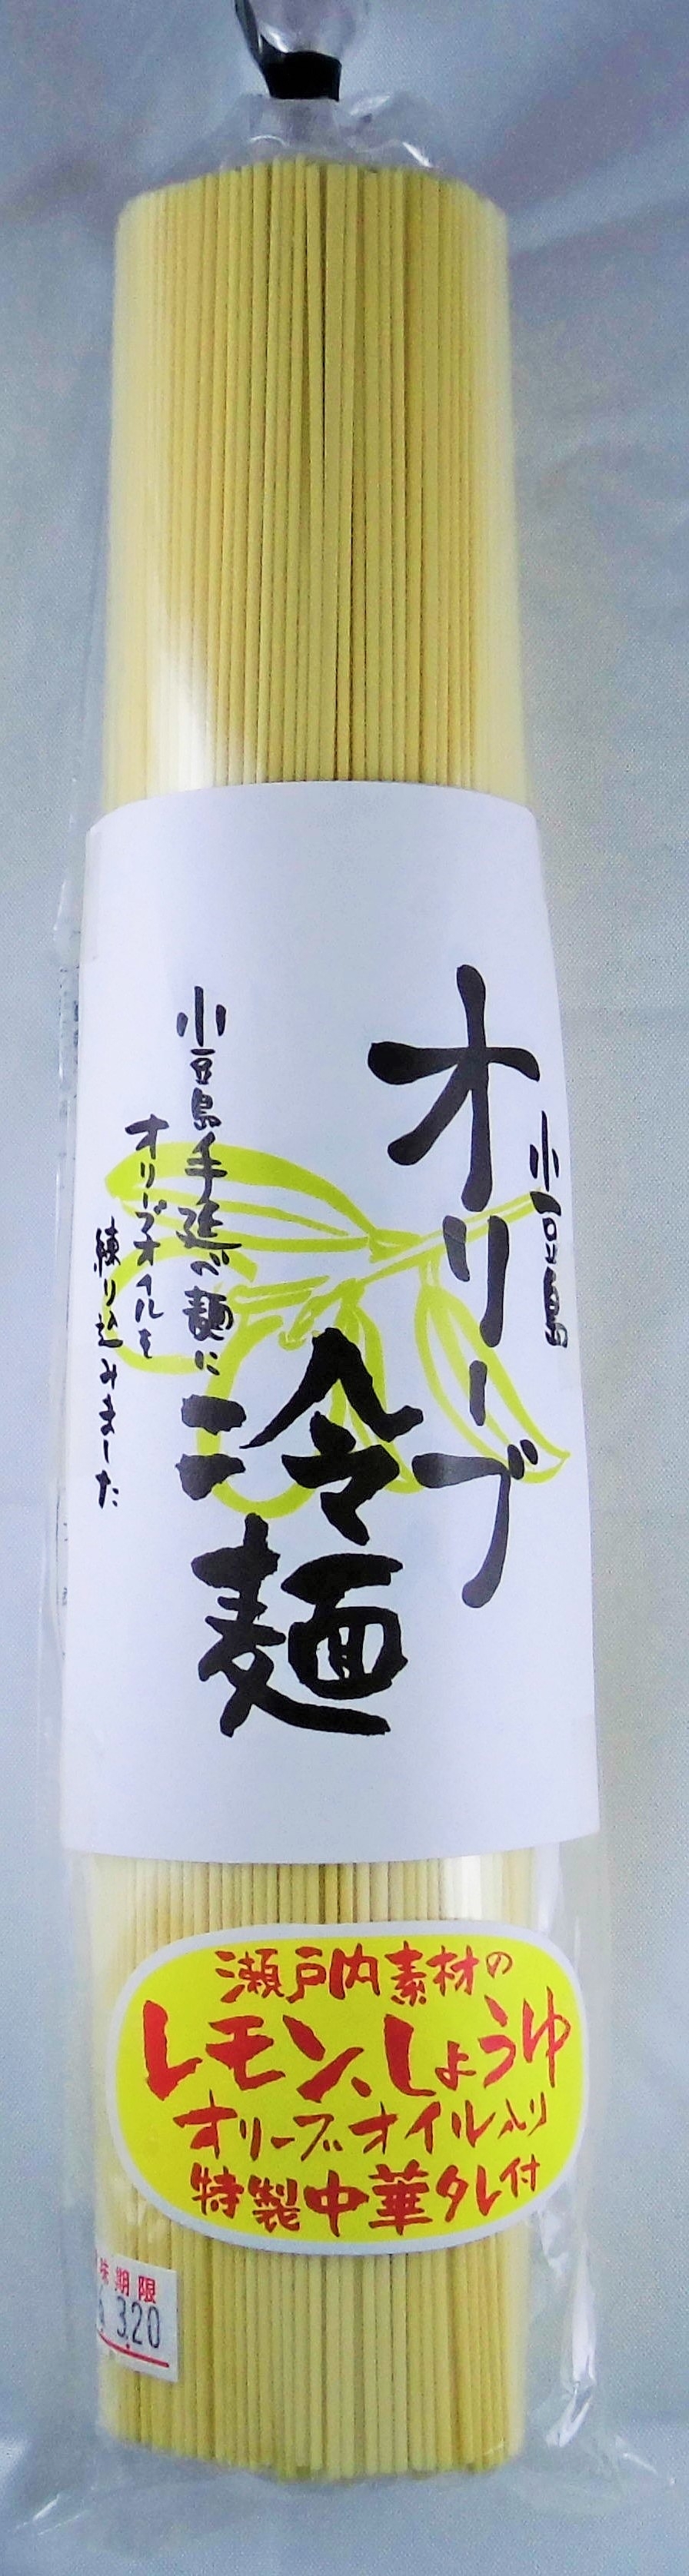 小豆島
オリーブ
冷麺
小豆島手延べ麺に
オリーブオイルを
練り込みました
瀬戸内素材の
レモン、しょうゆ
オリーブオイル入り
特製中華タレ付
味期限
3.20